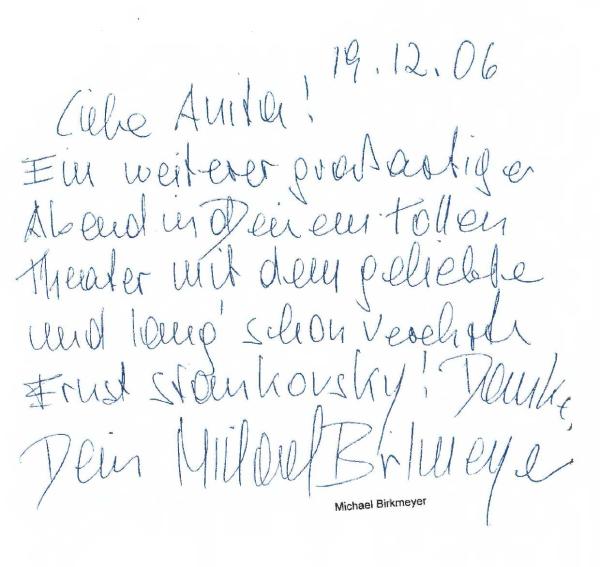 19.12.06
Liebe Anita!
Ein weiterer großartiger
Abend in Deinem tollen
Theater mit dem geliebte
und lang' schon verehrte
Ernst Stankovsky! Danke,
Dein Michael Birkmeyer
Michael Birkmeyer